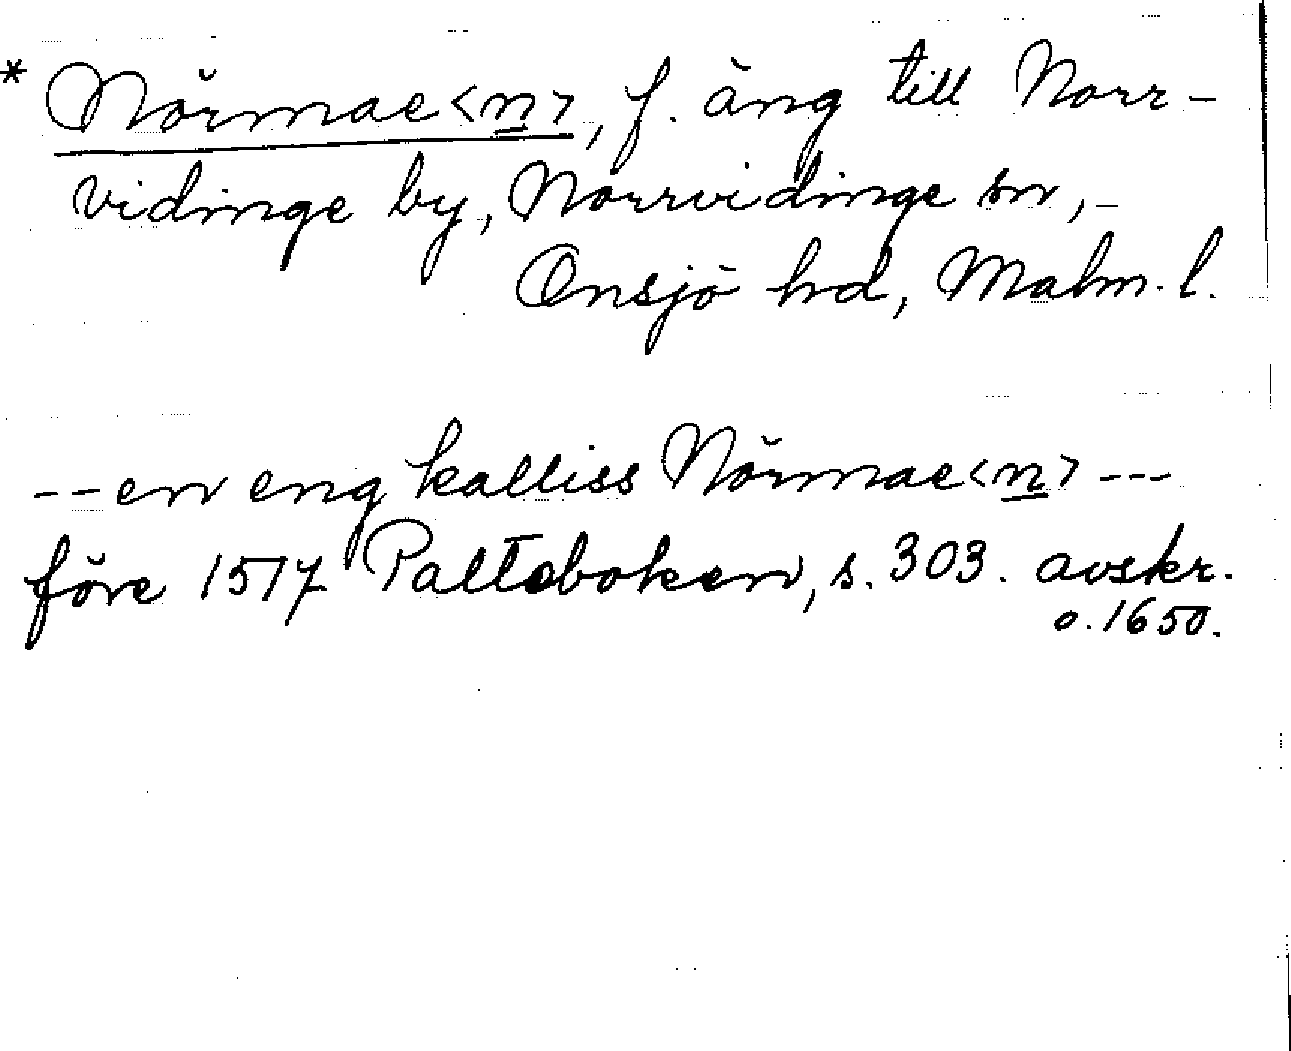 * Nörmae<n>, f. äng till Norr-
vidinge by, Norrvidinge sn,
Onsjö hd, Malm. l.
-- en eng kalliss Nörmae<n> ---
före 1517 Palteboken, s. 303. avskr.
o. 1650.